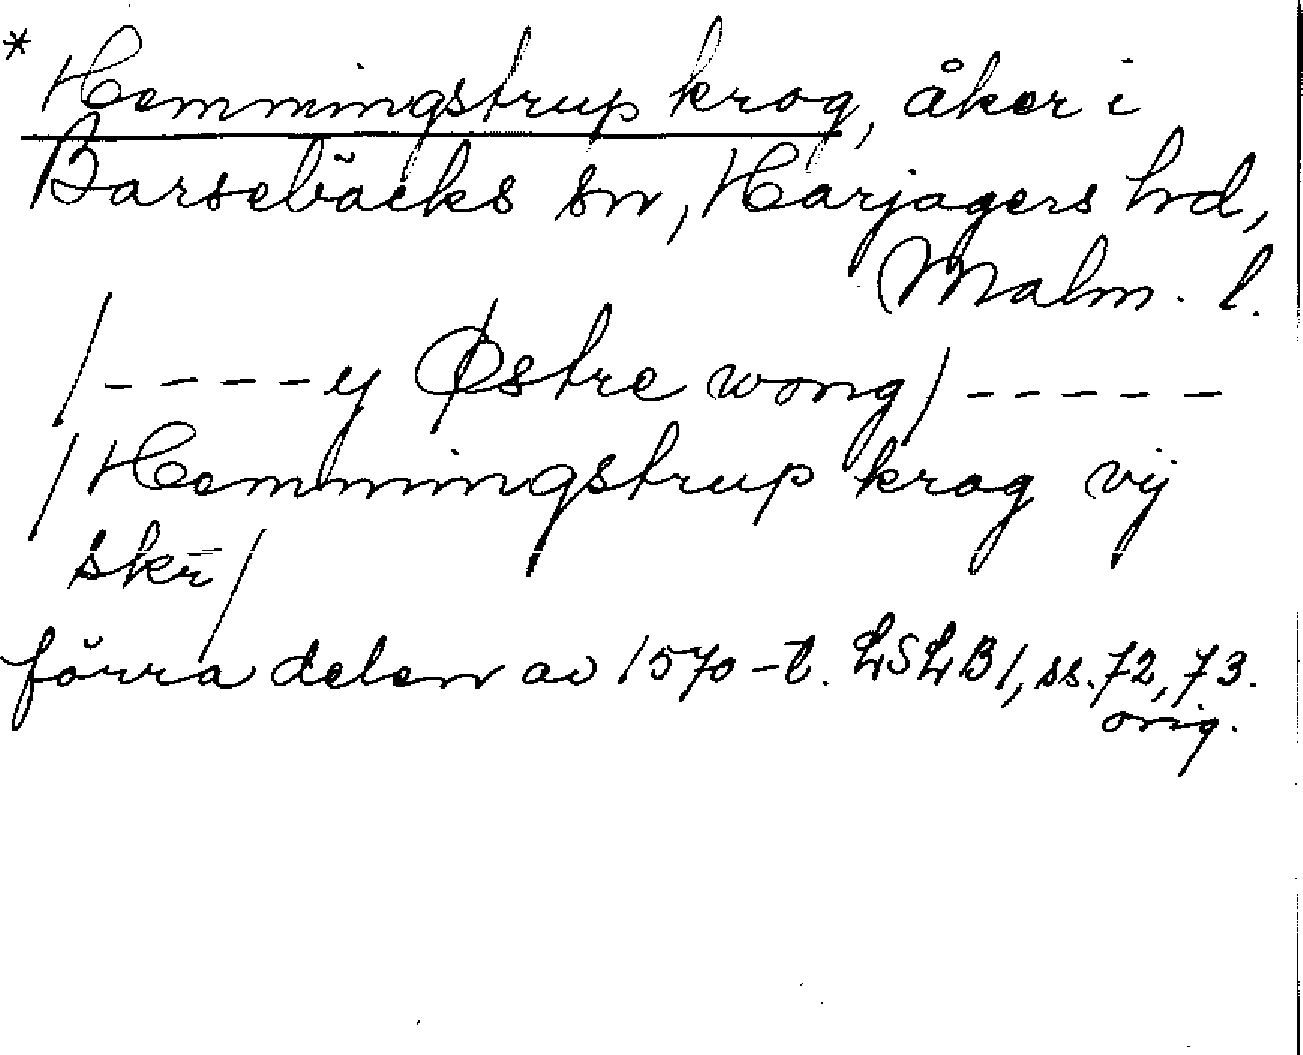 * Hemmingstrup krog, åker i
Barsebäcks sn, Harjagers hd,
Malm. l.
/----y Østre wong/-----
/Hemmingstrup krog vij
skr̄/
förra delen av 1570-t. LSLB1, ss. 72, 73.
orig.